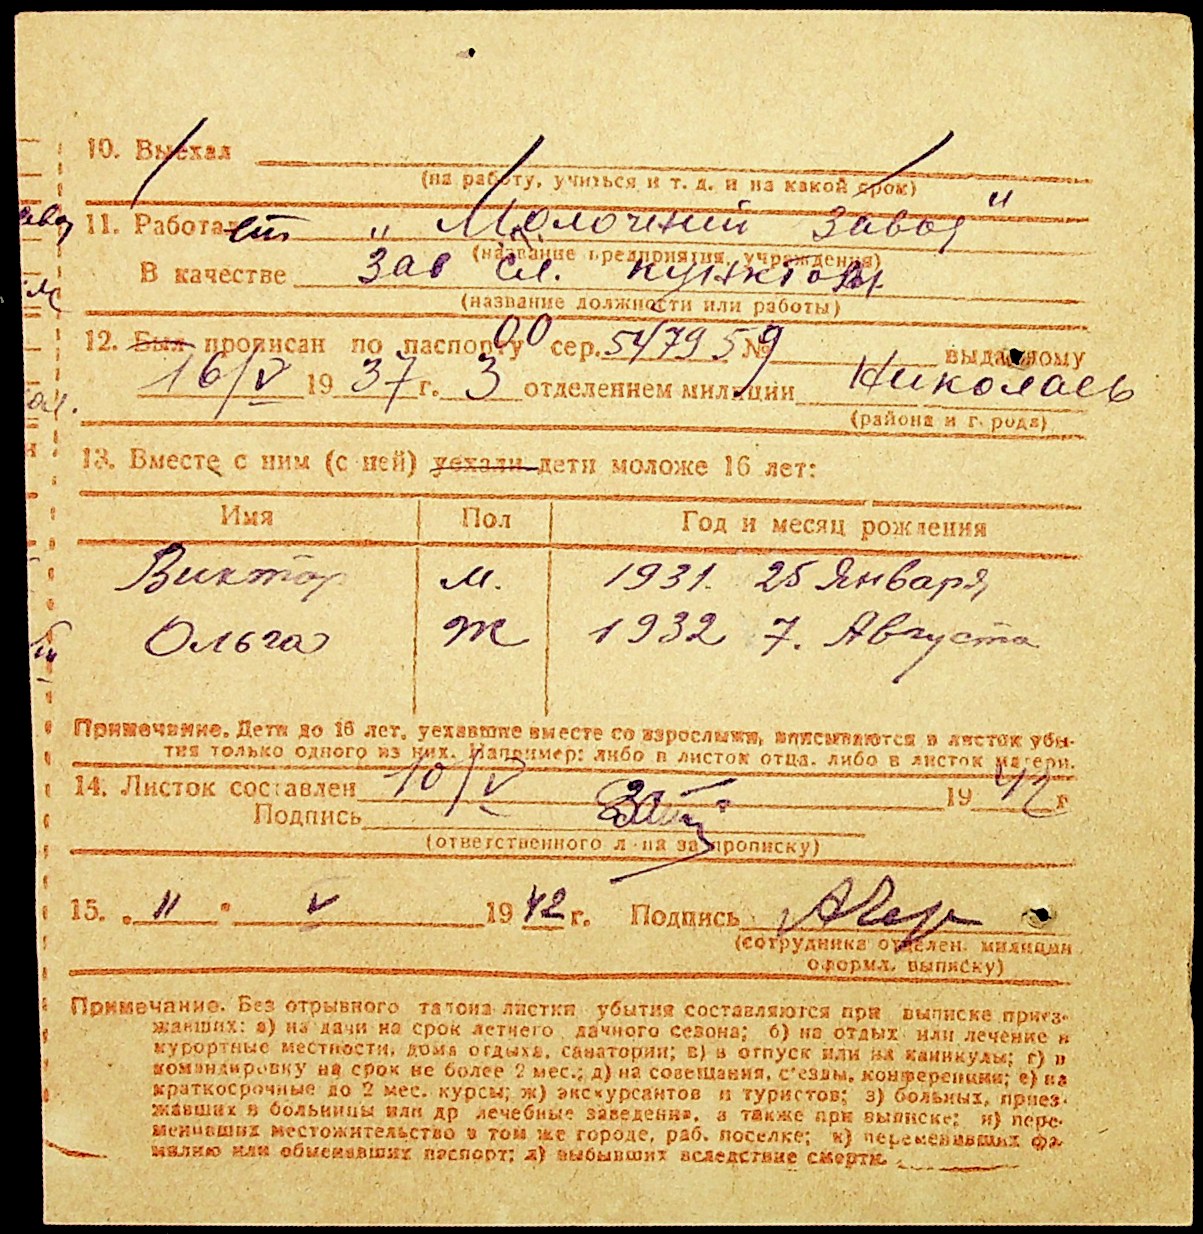 10. Выехал
(на работу, учиться и т. д. и на какой срок)
11. Работает „Молочный завод"
(название предприятия, учреждения)
В качестве Зав сл. пунктом
(название должности или работы)
12. Был прописан по паспорту 00 сер. 547959 № выданному
16/V 1937 г. 3 отделением милиции Николаев
(района и города)
13. Вместе с ним (с ней) уехали дети моложе 16 лет:
Имя Пол Год и месяц рождения
Виктор М. 1931. 25 Января
Ольга Ж 1932 7. Августа
Примечание. Дети до 16 лет, уехавшие вместе со взрослыми, вписываются в листок убы-
тия только одного из них. Например: либо в листок отца, либо в листок матери.
14. Листок составлен 10/V 1942 г
Подпись
(ответственного л-на за прописку)
15. „11" V 1942 г. Подпись
(сотрудника отделен. милиции
оформл. выписку)
Примечание. Без отрывного талона листки убытия составляются при выписке приез-
жавших: а) на дачи на срок летнего дачного сезона; б) на отдых или лечение в
курортные местности, дома отдыха, санатории; в) в отпуск или на каникулы; г) в
командировку на срок не более 2 мес.; д) на совещания, с'езды, конференции; е) на
краткосрочные до 2 мес. курсы; ж) экскурсантов и туристов; з) больных, приез-
жавших в больницы или др лечебные заведения, а также при выписке; и) пере-
менивших местожительство в том же городе, раб. поселке; к) переменивших фа-
милию или обменявших паспорт; л) выбывших вследствие смерти.